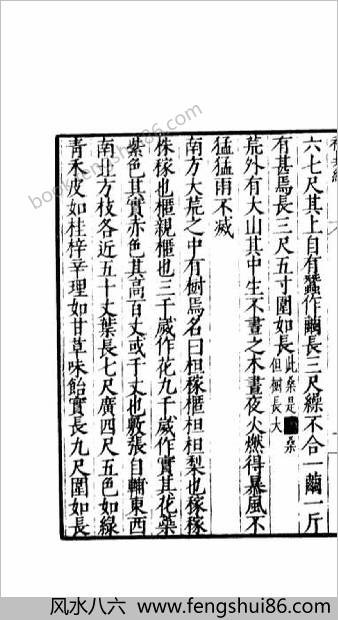 六七尺其上自有蠶作繭長三尺繰不合一繭一斤
有甚焉長三尺五寸圍如長此桑是桑
但樹長大
荒外有大山其中生不晝之木晝夜火燃得暴風不
猛猛雨不滅
南方大荒之中有樹焉名曰柤稼櫃柤柤梨也稼稼
株稼也櫃親櫃也三千歲作花九千歲作實其花蘂
紫色其實赤色其高百丈或千丈也敷張自輔東西
南北方枝各近五十丈葉長七尺廣四尺五色如綠
青木皮如桂梓辛理如甘草味飴實長九尺圍如長
bookfengshui86.com
风水八六 www.fengshui86.com